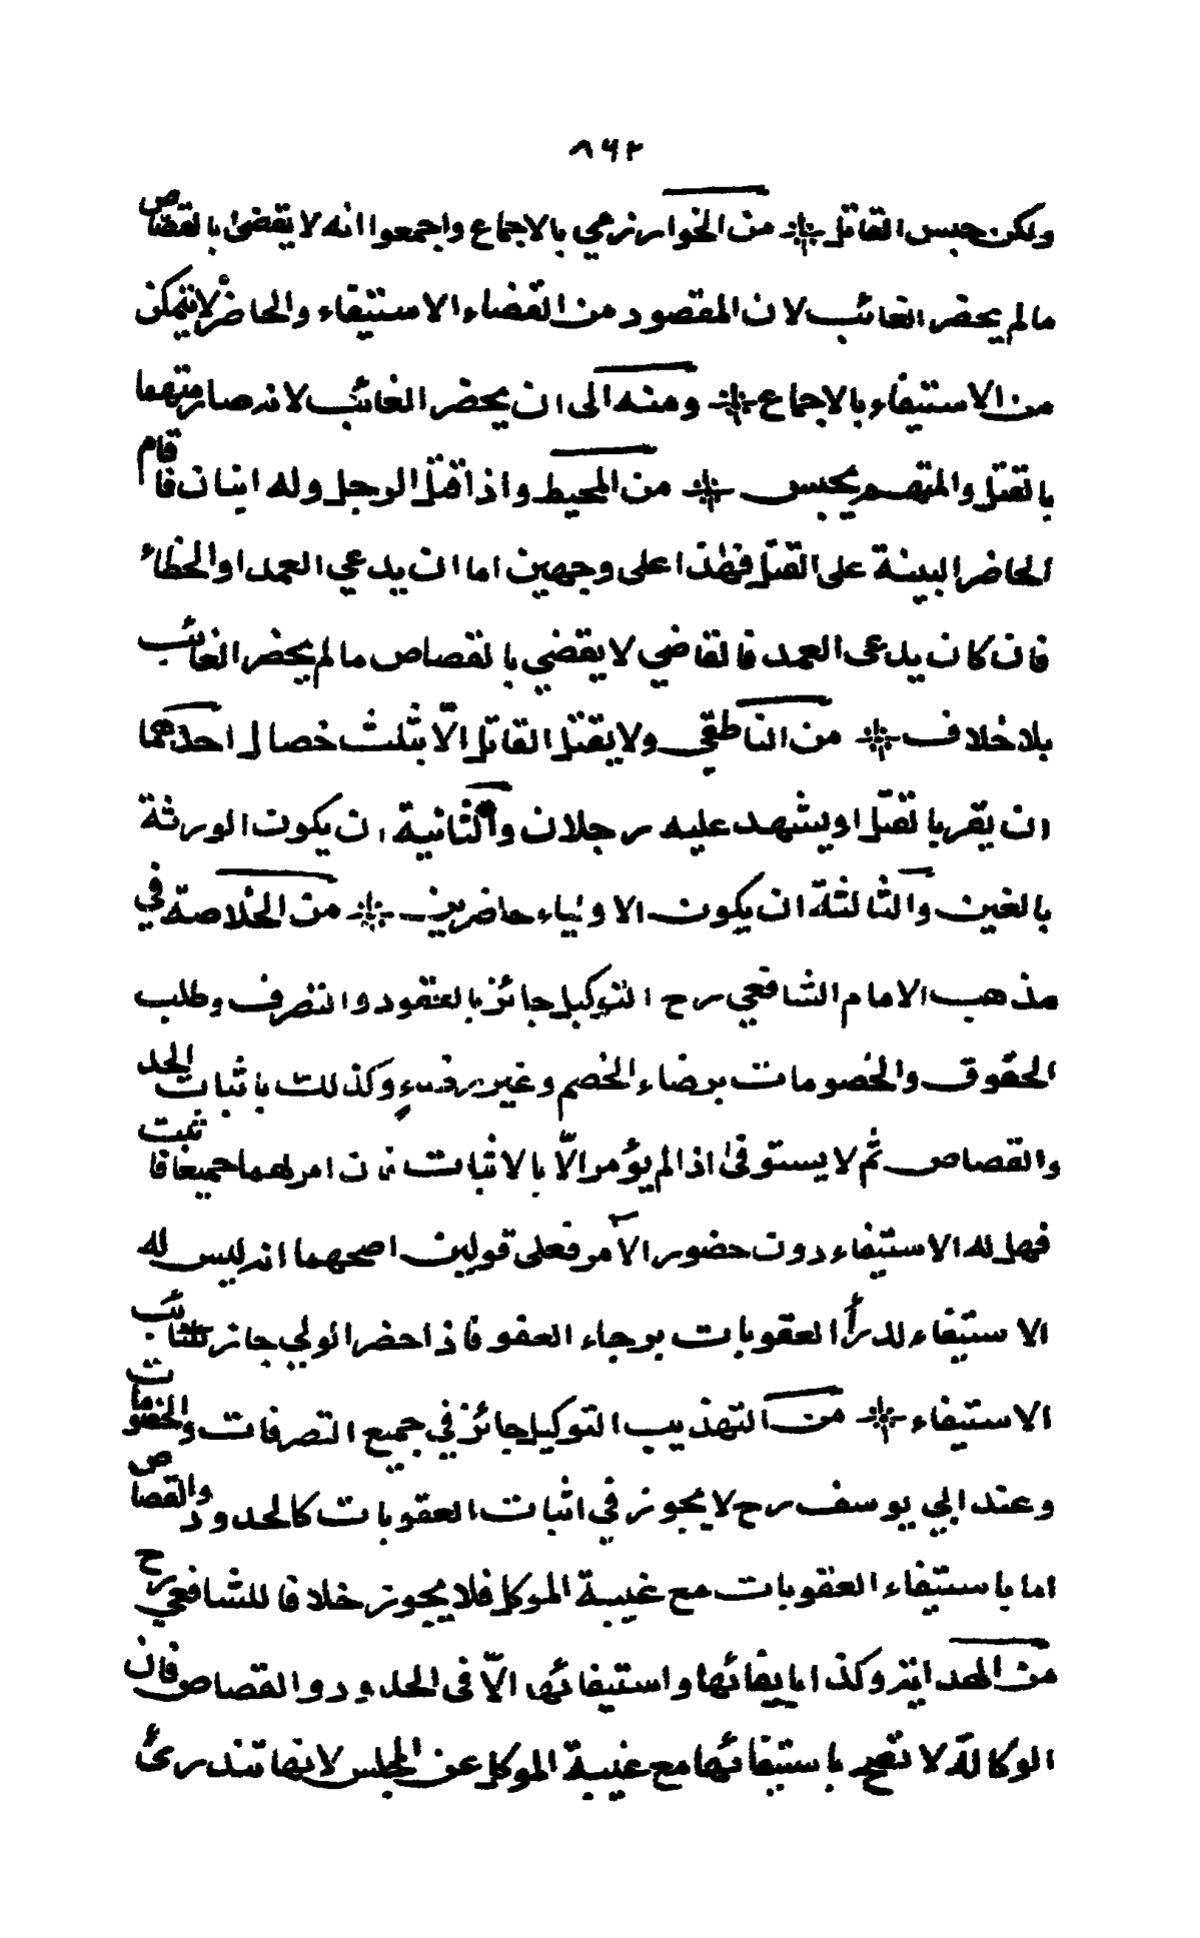 ٨٦٢
ولكن حبس القاتل ۞ من الخوارزمي بالاجماع واجمعوا انه لا يقضىٰ بالقصاص
مالم يحضر الغائب لان المقصود من القضاء الاستيفاء والحاضر لا يتمكن
من الاستيفاء بالاجماع ۞ ومنه الى ان يحضر الغائب لانه صار متهما
بالقتل والمتهم يحبس ۞ من المحيط واذا قتل الرجل وله ابنان فاقام
الحاضر البينة على القتل فهذا على وجهين اما ان يدعي العمد او الخطاء
فان كان يدعى العمد فالقاضي لا يقضي بالقصاص مالم يحضر الغائب
بلا خلاف ۞ من الناطقي ولا يقتل القاتل الّا بثلث خصال احدهما
ان يقر بالقتل او يشهد عليه رجلان والثانية ان يكون الورثة
بالغين والثالثة ان يكون الاولياء حاضرين ۞ من الخلاصة في
مذهب الامام الشافعي رح التوكيل جائز بالعقود والتصرف وطلب
الحقوق والخصومات برضاء الخصم وغير رضاءٍ وكذلك باثبات الحد
والقصاص ثم لا يستوفىٰ اذا لم يؤمر الّا بالاثبات فان امر لهما جميعا فاثبت
فهل له الاستيفاء دون حضور الآمر فعلى قولين اصحهما انه ليس له
الاستيفاء لدرأ العقوبات برجاء العفو فاذا حضر الولي جاز للنائب
الاستيفاء ۞ من التهذيب التوكيل جائز في جميع التصرفات والخصومات
وعند ابي يوسف رح لا يجوز في اثبات العقوبات كالحدود والقصاص
اما باستيفاء العقوبات مع غيبة الموكل فلا يجوز خلافا للشافعي رح
من الهداية وكذا بايفائها واستيفائها الّا فى الحدود والقصاص فان
الوكالة لا تصح باستيفائها مع غيبة الموكل عن المجلس لانها تندرئ